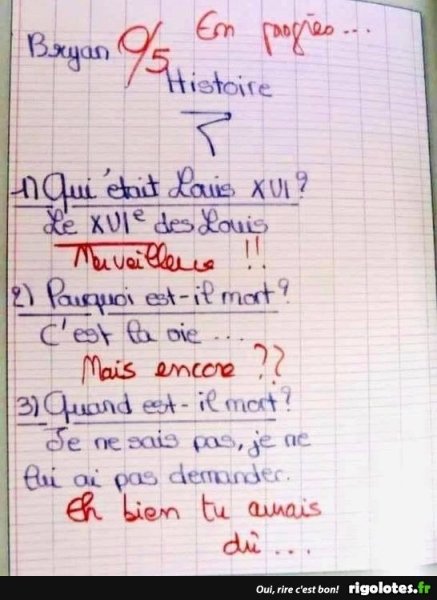 En progrès...
Bryan 0/5
Histoire
1) Qui était Louis XVI?
Le XVIe des Louis
Merveilleux !!
2) Pourquoi est-il mort?
C'est la vie ...
Mais encore ??
3) Quand est-il mort?
Je ne sais pas, je ne
lui ai pas demander.
Eh bien tu aurais
dû ...
Oui, rire c'est bon! rigolotes.fr